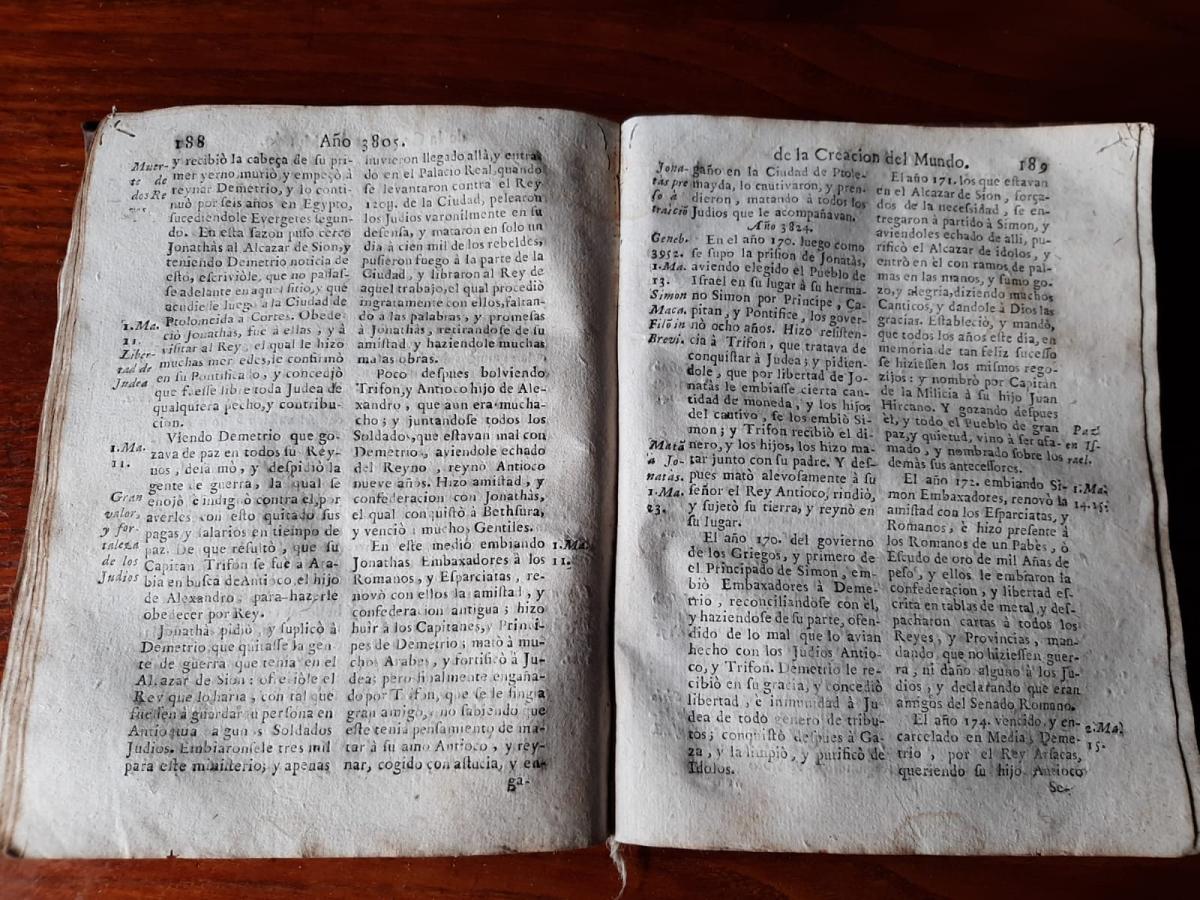 188 Año 3805.
Muer-
te de
dos Re
y recibiò la cabeça de su pri-
mer yerno, muriò y empeçò à
reynar Demetrio, y lo conti-
nuò por seis años en Egypto,
sucediendole Evergetes segun-
do. En esta sazon puso cerco
Jonathàs al Alcazar de Sion, y
teniendo Demetrio noticia de
esto, escriviòle, que no passas-
se adelante en aquel sitio, y que
acudiesse luego à la Ciudad de
Ptoloneida à Cortes. Obede-
ciò Jonathàs, fue à ellas, y à
visitar al Rey, el qual le hizo
muchas mercedes, le confirmò
en su Pontificado, y concediò
que fuesse libre toda Judea de
qualquiera pecho, y contribu-
cion.
1. Ma.
11.
Liber-
tad de
Judea
Viendo Demetrio que go-
zava de paz en todos su Rey-
nos, desarmò, y despidiò la
gente de guerra, la qual se
enojò è indignò contra el, por
averles con esto quitado sus
pagas y salarios en tiempo de
paz. De que resultò, que su
Capitan Trifon se fue à Ara-
bia en busca de Antioco, el hijo
de Alexandro, para hazerle
obedecer por Rey.
1. Ma.
11.
Gran
valor,
y for-
taleza
de los
Judios
Jonathà pidiò, y suplicò à
Demetrio, que quitasse la gen-
te de guerra que tenia en el
Alcazar de Sion: ofreciòle el
Rey que lo haria, con tal que
fuessen à guardar su persona en
Antioquia algunos Soldados
Judios. Embiaronsele tres mil
para este ministerio; y apenas
huvieron llegado allà, y entra-
do en el Palacio Real, quando
se levantaron contra el Rey
120y. de la Ciudad, pelearon
los Judios varonilmente en su
defensa, y mataron en solo un
dia à cien mil de los rebeldes,
pusieron fuego à la parte de la
Ciudad, y libraron al Rey de
aquel trabajo, el qual procediò
ingratamente con ellos, faltan-
do à las palabras, y promesas
à Jonathàs, retirandose de su
amistad, y haziendole muchas
malas obras.
Poco despues bolviendo
Trifon, y Antioco hijo de Ale-
xandro, que aun era mucha-
cho; y juntandose todos los
Soldados, que estavan mal con
Demetrio, aviendole echado
del Reyno, reynò Antioco
nueve años. Hizo amistad, y
confederacion con Jonathàs,
el qual conquistò à Bethsura,
y venciò à muchos Gentiles.
En este medio embiando
Jonathàs Embaxadores à los
Romanos, y Esparciatas, re-
novò con ellos la amistad, y
confederacion antigua; hizo
huir à los Capitanes, y Princi-
pes de Demetrio; matò à mu-
chos Arabes, y fortificò à Ju-
dea; pero finalmente engaña-
do por Trifon, que se le fingia
gran amigo, no sabiendo que
este tenia pensamiento de ma-
tar à su amo Antioco, y rey-
nar, cogido con astucia, y en-
1. Ma.
11.
ga-
de la Creacion del Mundo. 189
Jona-
tàs pre
so à
traiciò
gaño en la Ciudad de Ptole-
mayda, lo cautivaron, y pren-
dieron, matando à todos los
Judios que le acompañavan.
Año 3824.
Geneb.
3952.
1. Ma.
13.
Simon
Maca.
Filo in
Brevi.
En el año 170. luego como
se supo la prision de Jonatàs,
aviendo elegido el Pueblo de
Israel en su lugar à su herma-
no Simon por Principe, Ca-
pitan, y Pontifice, los gover-
nò ocho años. Hizo resisten-
cia à Trifon, que tratava de
conquistar à Judea; y pidien-
dole, que por libertad de Jo-
natàs le embiasse cierta can-
tidad de moneda, y los hijos
del cautivo, se los embiò Si-
mon; y Trifon recibiò el di-
nero, y los hijos, los hizo ma-
tar junto con su padre. Y des-
pues matò alevosamente à su
señor el Rey Antioco, rindiò,
y sujetò su tierra, y reynò en
su lugar.
Matã
à Jo-
natàs.
1. Ma.
13.
El año 170. del govierno
de los Griegos, y primero de
el Principado de Simon, em-
biò Embaxadores à Deme-
trio, reconciliandose con el,
y haziendose de su parte, ofen-
dido de lo mal que lo avian
hecho con los Judios Antio-
co, y Trifon. Demetrio le re-
cibiò en su gracia, y concediò
libertad, è inmunidad à Ju-
dea de todo genero de tribu-
tos; conquistò despues à Ga-
za, y la limpiò, y purificò de
Idolos.
El año 171. los que estavan
en el Alcazar de Sion, força-
dos de la necesidad, se en-
tregaron à partido à Simon, y
aviendoles echado de alli, pu-
rificò el Alcazar de idolos, y
entrò en èl con ramos de pal-
mas en las manos, y sumo go-
zo, y alegria, diziendo muchos
Canticos, y dandole à Dios las
gracias. Estableciò, y mandò,
que todos los años este dia, en
memoria de tan feliz sucesso
se hiziessen los mismos rego-
zijos: y nombrò por Capitan
de la Milicia à su hijo Juan
Hircano. Y gozando despues
èl, y todo el Pueblo de gran
paz, y quietud, vino à ser afa-
mado, y nombrado sobre los
demàs sus antecessores.
Paz
en Is-
rael.
El año 172. embiando Si-
mon Embaxadores, renovò la
amistad con los Esparciatas, y
Romanos, è hizo presente à
los Romanos de un Pabès, ò
Escudo de oro de mil Añas de
peso, y ellos le embraron la
confederacion, y libertad es-
crita en tablas de metal, y des-
pacharon cartas à todos los
Reyes, y Provincias, man-
dando, que no hiziessen guer-
ra, ni daño alguno à los Ju-
dios, y declarando que eran
amigos del Senado Romano.
1. Ma.
14. 15.
El año 174. vencido, y en-
carcelado en Media Deme-
trio, por el Rey Arsacas,
queriendo su hijo Antioco
2. Ma.
15.
Se-